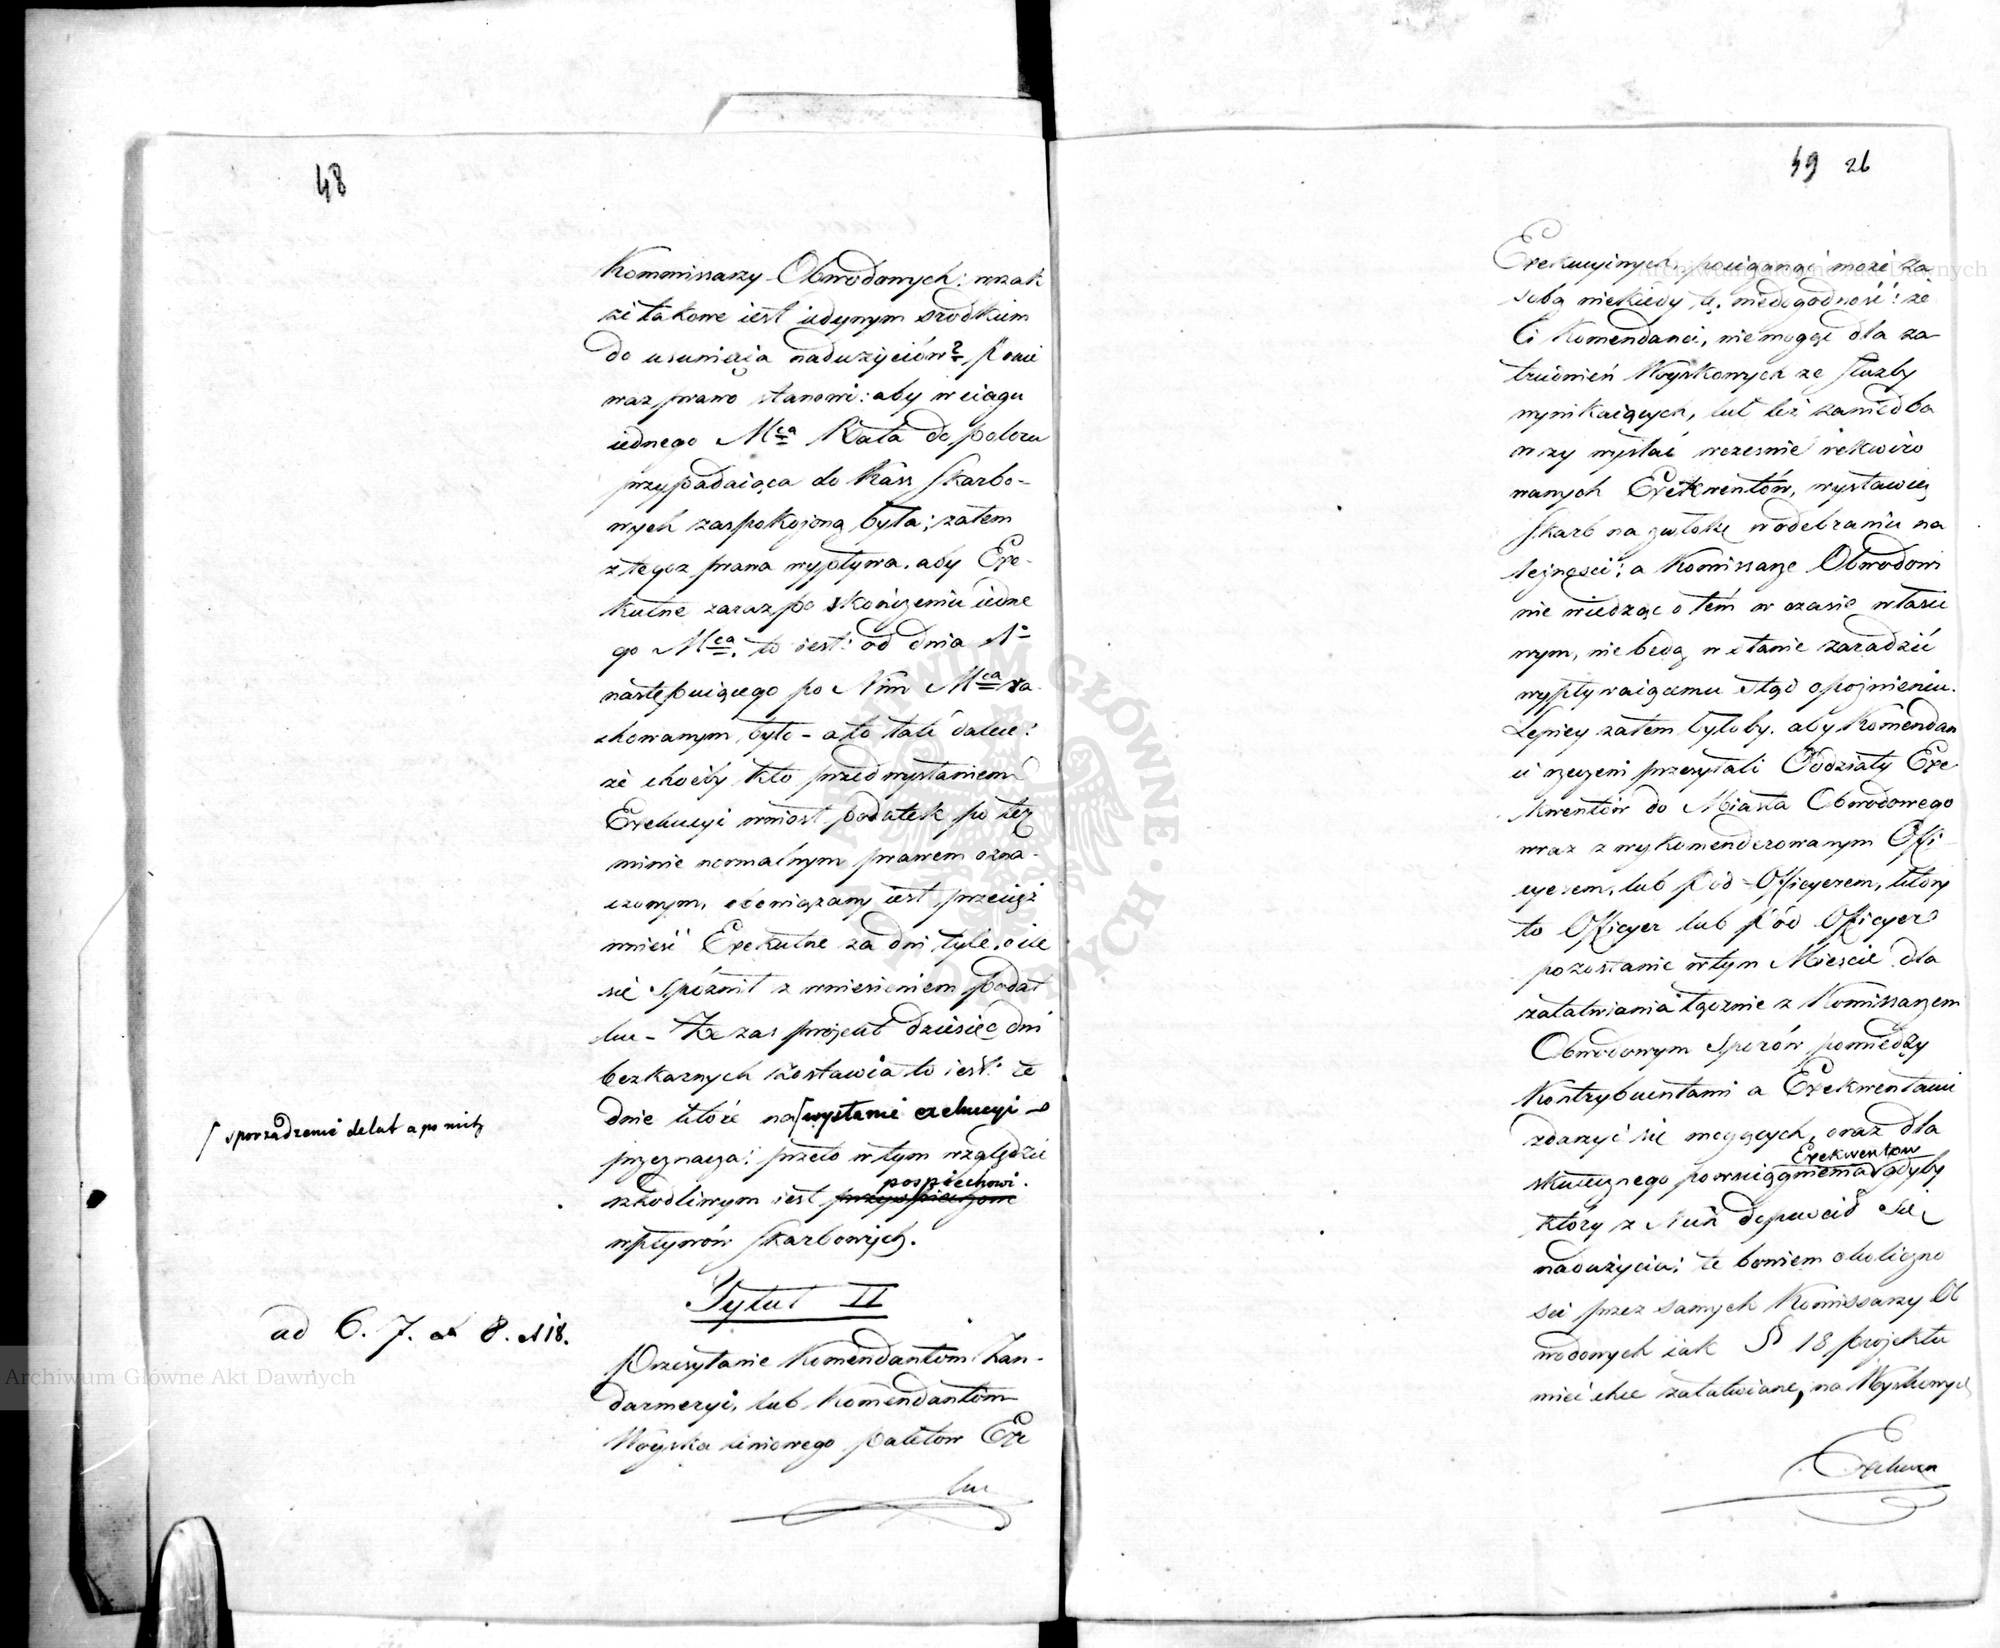 48
Kommissarzy Obwodowych: wszak
że takowe iest iedynym srodkiem
do usunięcia nadużyciów? ponie
waż prawo stanowi: aby w ciągu
iednego Mca Rata do poboru
przypadaiąca do Kass Skarbo-
wych zaspokojoną była; zatem
z tegoż prawa wypływa, aby Exe-
kutne zaraz po skończeniu iedne
go Mca, to iest: od dnia 1o
następuiącego po Nim Mca ra
chowanym było - a to tak dalece:
że choćby kto przed wysłaniem
Exekucyi wniosł podatek po ter
minie normalnym prawem ozna-
czonym, obowiązany iest przecięż
wnieść Exekutne za dni tyle, o ile
się spóźnił z wniesieniem podat
ku - Że zas projekt dziesięć dni
bezkarnych zostawia to iest: te
dnie które na ſ wysłanie exekucyi
ſ sporządzenie delat a po nich
przeznacza; przeto w tym względzie
pospiechowi
szkodliwym iest
wpływów Skarbowych.
Tytuł II
ad 6. 7. 8. 18.
Przesyłanie Komendantom Żan-
darmeryi, lub Komendantom
Woyska liniowego paletow Exe
ku
49 26
Exekucyinych, pociągnąć może za
sobą niekiedy tę niedogodność: że
Ci Komendanci, nie mogąc dla za
trudnień Woyskowych ze służby
wynikaiących, lub też zaniedba
wszy wysłać wcześnie rekwiro
wanych Exekwentów, wystawią
Skarb na zwłokę w odebraniu na
leżności; a Komissarze Obwodowi
nie wiedząc o tém w czasie właści
wym, nie będą w stanie zaradzić
wypływaiącemu stąd opoznieniu.
Lepiey zatem byłoby, aby Komendan
ci rzeczeni przesyłali Oddziały Exe
kwentów do Miasta Obwodowego
wraz z wykomenderowanym Offi
cyerem, lub Pod-Officyerem, który
to Officyer lub Pod Officyer
pozostanie w tym Miescie dla
załatwiania łącznie z Komissarzem
Obwodowym Sporów pomiędzy
Kontrybuentami a Exekwentami
zdarzyć się mogących, oraz dla
Exekwentow
skutecznego powsciągnienia gdyby
który z Nich dopuscił się
nadużycia; te bowiem okoliczno
sci przez samych Komissarzy Ob
wodowych iak § 18 projektu
mieć chce załatwiane, na Woyskowych
Exekwen